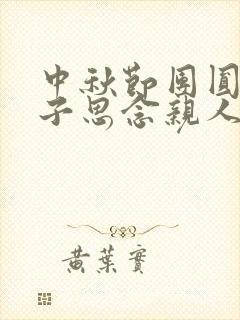 中秋節團圓
子思念親人
黃葉實